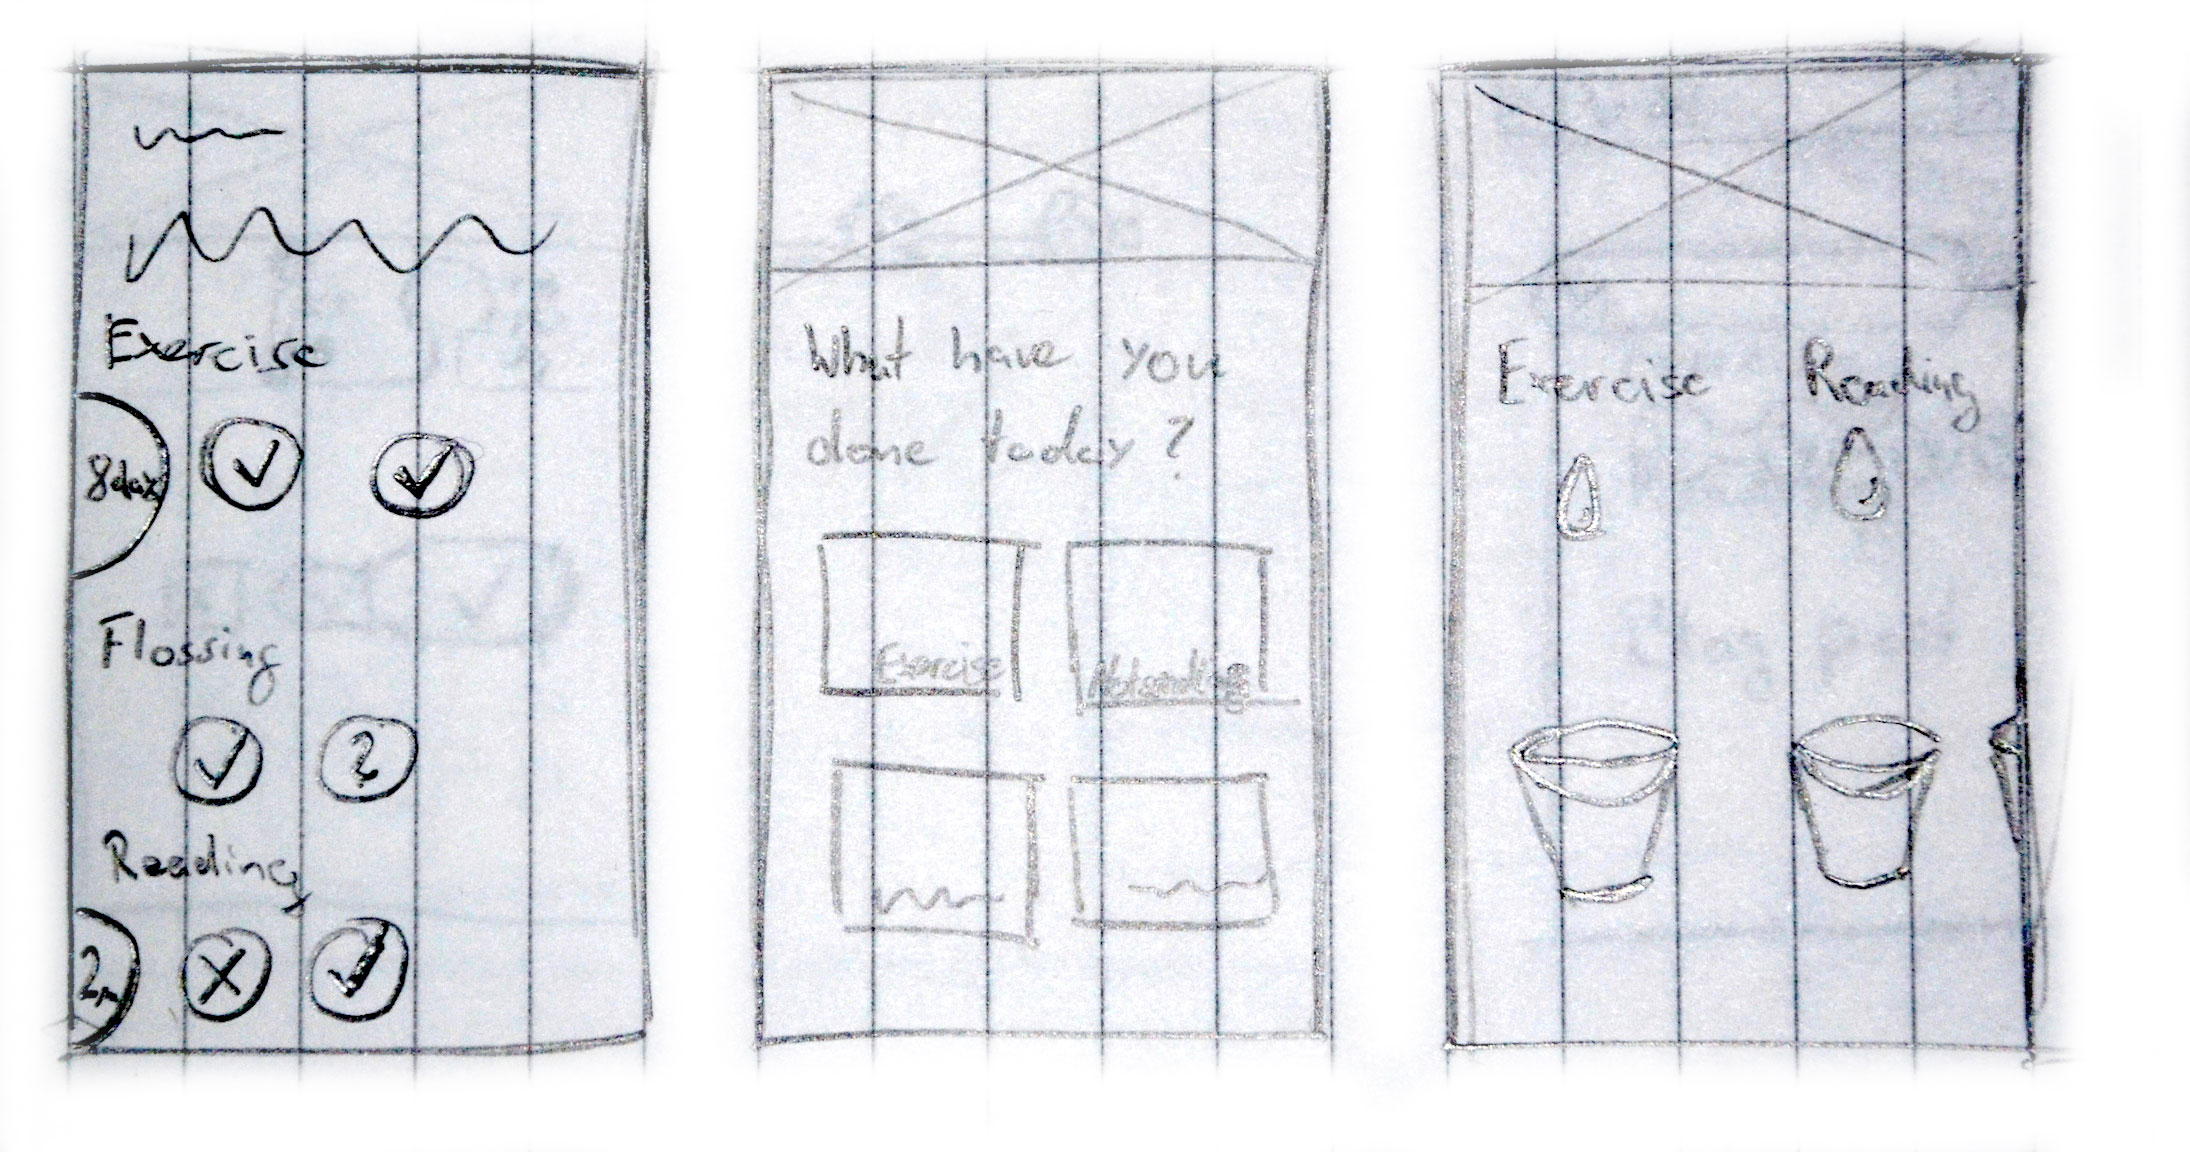 Exercise
8days
Flossing
?
Reading
What have you
done today?
Exercise
Exercise Reading